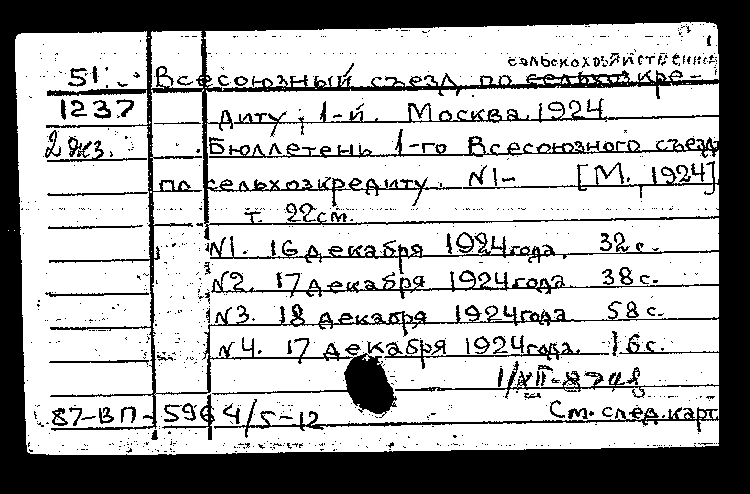 сельскохозяйственно
51. Всесоюзный съезд по сельхозкре-
1237 диту, 1-й. Москва. 1924
2 экз. Бюллетень 1-го Всесоюзного съезда
по сельхозкредиту. N1- [М., 1924]
т. 22см.
N1. 16 декабря 1924 года. 32 с.
N2. 17 декабря 1924 года 38 с.
N3. 18 декабря 1924 года 58 с.
N4. 17 декабря 1924 года. 16 с.
87-ВП-5964/5-12 См. след. карт.